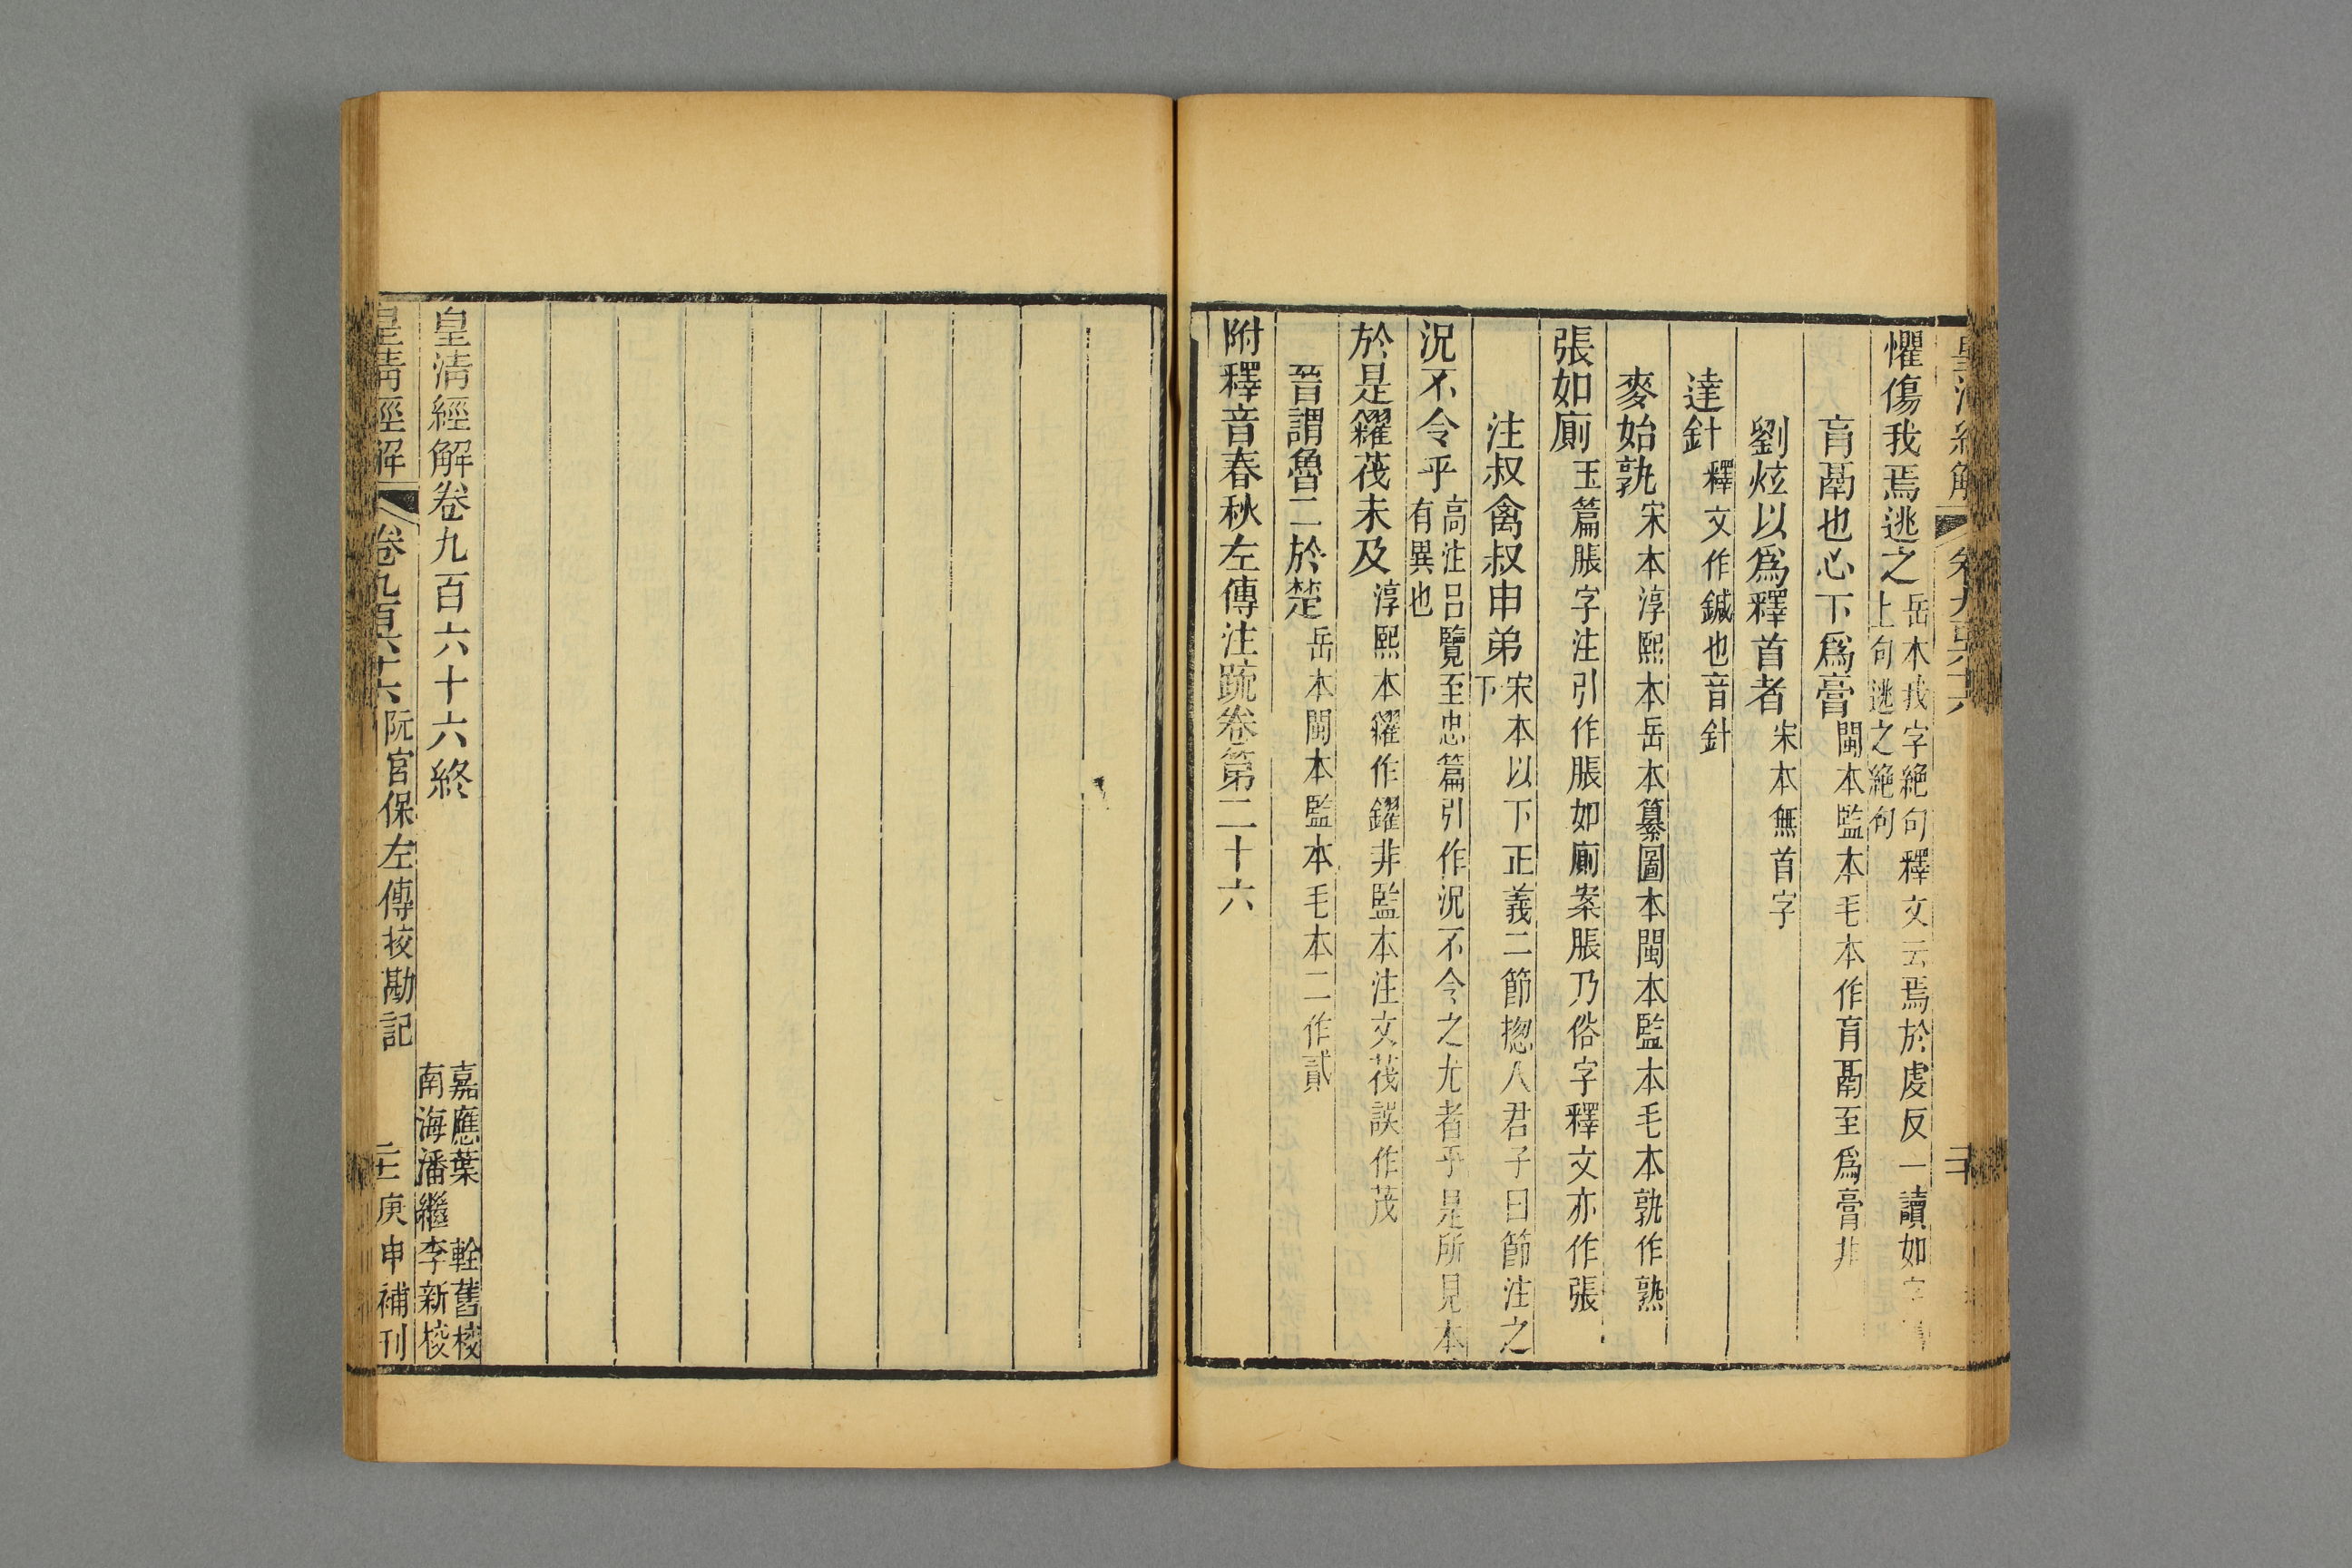 懼傷我焉逃之岳本我字絕句釋文云焉於虔反一讀如字
上句逃之絕句
肓鬲也心下爲膏閩本監本毛本作肓鬲至爲膏非
劉炫以爲釋首者宋本無首字
達針釋文作鍼也音針
麥始孰宋本淳熙本岳本纂圖本閩本監本毛本孰作熟
張如廁玉篇脹字注引作脹如廁案脹乃俗字釋文亦作張
注叔禽叔申弟宋本以下正義二節揔入君子曰節注之
下
況不令乎高注呂覽至忠篇引作況不令之尤者乎是所見本
有異也
於是糴茷未及淳熙本糴作鑃非監本注文茷誤作茂
晉謂魯二於楚岳本閩本監本毛本二作貳
附釋音春秋左傳注疏卷第二十六
皇清經解卷九百六十六終
嘉應葉 輇舊校
南海潘繼李新校
皇清經解 卷九百六十六 阮宮保左傳挍勘記 庚申補刊